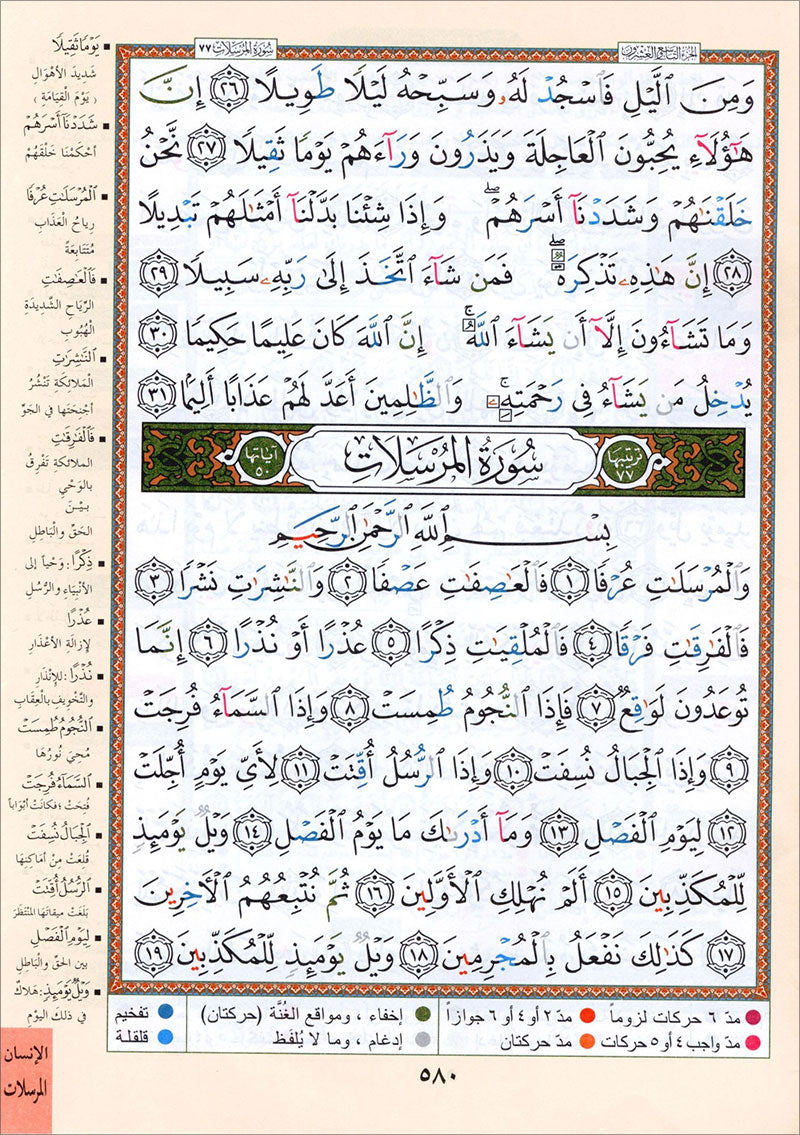 الجزء التاسع والعشرون
سورة المرسلات ٧٧
وَمِنَ ٱلَّيۡلِ فَٱسۡجُدۡ لَهُۥ وَسَبِّحۡهُ لَيۡلٗا طَوِيلًا ٢٦ إِنَّ
هَٰٓؤُلَآءِ يُحِبُّونَ ٱلۡعَاجِلَةَ وَيَذَرُونَ وَرَآءَهُمۡ يَوۡمٗا ثَقِيلٗا ٢٧ نَّحۡنُ
خَلَقۡنَٰهُمۡ وَشَدَدۡنَآ أَسۡرَهُمۡۖ وَإِذَا شِئۡنَا بَدَّلۡنَآ أَمۡثَٰلَهُمۡ تَبۡدِيلًا
٢٨ إِنَّ هَٰذِهِۦ تَذۡكِرَةٞۖ فَمَن شَآءَ ٱتَّخَذَ إِلَىٰ رَبِّهِۦ سَبِيلٗا ٢٩
وَمَا تَشَآءُونَ إِلَّآ أَن يَشَآءَ ٱللَّهُۚ إِنَّ ٱللَّهَ كَانَ عَلِيمًا حَكِيمٗا ٣٠
يُدۡخِلُ مَن يَشَآءُ فِي رَحۡمَتِهِۦۚ وَٱلظَّٰلِمِينَ أَعَدَّ لَهُمۡ عَذَابًا أَلِيمَۢا ٣١
ترتيبها ٧٧ سورة المرسلات آياتها ٥٠
بِسۡمِ ٱللَّهِ ٱلرَّحۡمَٰنِ ٱلرَّحِيمِ
وَٱلۡمُرۡسَلَٰتِ عُرۡفٗا ١ فَٱلۡعَٰصِفَٰتِ عَصۡفٗا ٢ وَٱلنَّٰشِرَٰتِ نَشۡرٗا ٣
فَٱلۡفَٰرِقَٰتِ فَرۡقٗا ٤ فَٱلۡمُلۡقِيَٰتِ ذِكۡرًا ٥ عُذۡرًا أَوۡ نُذۡرًا ٦ إِنَّمَا
تُوعَدُونَ لَوَٰقِعٞ ٧ فَإِذَا ٱلنُّجُومُ طُمِسَتۡ ٨ وَإِذَا ٱلسَّمَآءُ فُرِجَتۡ
٩ وَإِذَا ٱلۡجِبَالُ نُسِفَتۡ ١٠ وَإِذَا ٱلرُّسُلُ أُقِّتَتۡ ١١ لِأَيِّ يَوۡمٍ أُجِّلَتۡ
١٢ لِيَوۡمِ ٱلۡفَصۡلِ ١٣ وَمَآ أَدۡرَىٰكَ مَا يَوۡمُ ٱلۡفَصۡلِ ١٤ وَيۡلٞ يَوۡمَئِذٖ
لِّلۡمُكَذِّبِينَ ١٥ أَلَمۡ نُهۡلِكِ ٱلۡأَوَّلِينَ ١٦ ثُمَّ نُتۡبِعُهُمُ ٱلۡأٓخِرِينَ
١٧ كَذَٰلِكَ نَفۡعَلُ بِٱلۡمُجۡرِمِينَ ١٨ وَيۡلٞ يَوۡمَئِذٖ لِّلۡمُكَذِّبِينَ ١٩
يَوۡمٗا ثَقِيلٗا
شَدِيدَ الأَهْوَالِ
(يَوْمَ الْقِيَامَةِ)
شَدَدۡنَآ أَسۡرَهُمۡ
أحْكَمْنَا خَلْقَهُمْ
ٱلۡمُرۡسَلَٰتِ عُرۡفٗا
رِياحُ الْعَذَابِ
مُتَتَابِعَةً
فَٱلۡعَٰصِفَٰتِ
الرِّيَاحِ الشَّدِيدَةِ
الْهُبُوبِ
ٱلنَّٰشِرَٰتِ
الْمَلائِكَةِ تَنْشُرُ
أجْنِحَتَها في الجَوِّ
فَٱلۡفَٰرِقَٰتِ
الملائكةِ تَفْرِقُ
بالوَحْيِ
بيْنَ
الحَقِّ والْبَاطِلِ
ذِكۡرًا : وَحْياً إلى
الأَنْبِيَاءِ والرُّسُلِ
عُذۡرًا
لإزالَةِ الأعْذَارِ
نُذۡرًا : للإِنْذَارِ
والتَّخْوِيفِ بالْعِقَابِ
ٱلنُّجُومُ طُمِسَتۡ
مُحِيَ نُورُهَا
ٱلسَّمَآءُ فُرِجَتۡ
فُتِحَتْ ؛ فكَانَتْ أبْوَاباً
ٱلۡجِبَالُ نُسِفَتۡ
قُلِعَتْ مِنْ أمَاكِنِهَا
ٱلرُّسُلُ أُقِّتَتۡ
بَلَغَتْ مِيقَاتَهَا المُنْتَظَرَ
لِيَوۡمِ ٱلۡفَصۡلِ
بين الحَقِّ والْبَاطِلِ
وَيۡلٞ يَوۡمَئِذٖ : هَلاكٌ
في ذلكَ اليَوْمِ
مدّ ٦ حركات لزوماً مدّ ٢ أو ٤ أو ٦ جوازاً إخفاء ، ومواقع الغُنَّة (حركتان) تفخيم
مدّ واجب ٤ أو ٥ حركات مدّ حركتان إدغام ، وما لا يُلفَظ قلقلة
الإنسان
المرسلات
٥٨٠